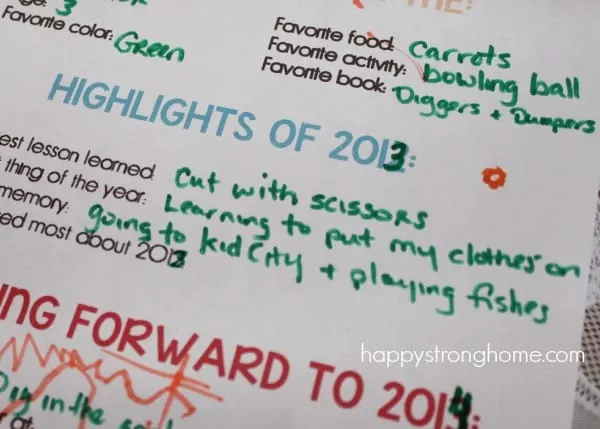 THE:
3
Favorite color: Green
Favorite food: Carrots
Favorite activity: bowling ball
Favorite book: Diggers + Dumpers
HIGHLIGHTS OF 2013:
est lesson learned: Cut with scissors
thing of the year: Learning to put my clothes on
memory: going to kid City + playing fishes
ed most about 2013
ING FORWARD TO 2014:
Dig in the
at:
happystronghome.com